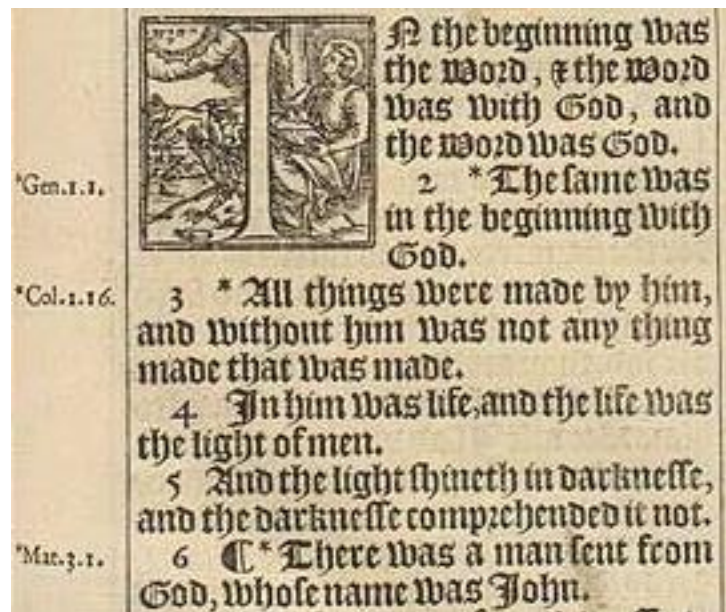 IN the beginning was
the Word, & the Word
was with God, and
the Word was God.
*Gen.1.1.
2 *The same was
in the beginning with
God.
*Col.1.16.
3 *All things were made by him,
and without him was not any thing
made that was made.
4 In him was life, and the life was
the light of men.
5 And the light shineth in darknesse,
and the darknesse comprehended it not.
*Mat.3.1.
6 ¶ *There was a man sent from
God, whose name was John.